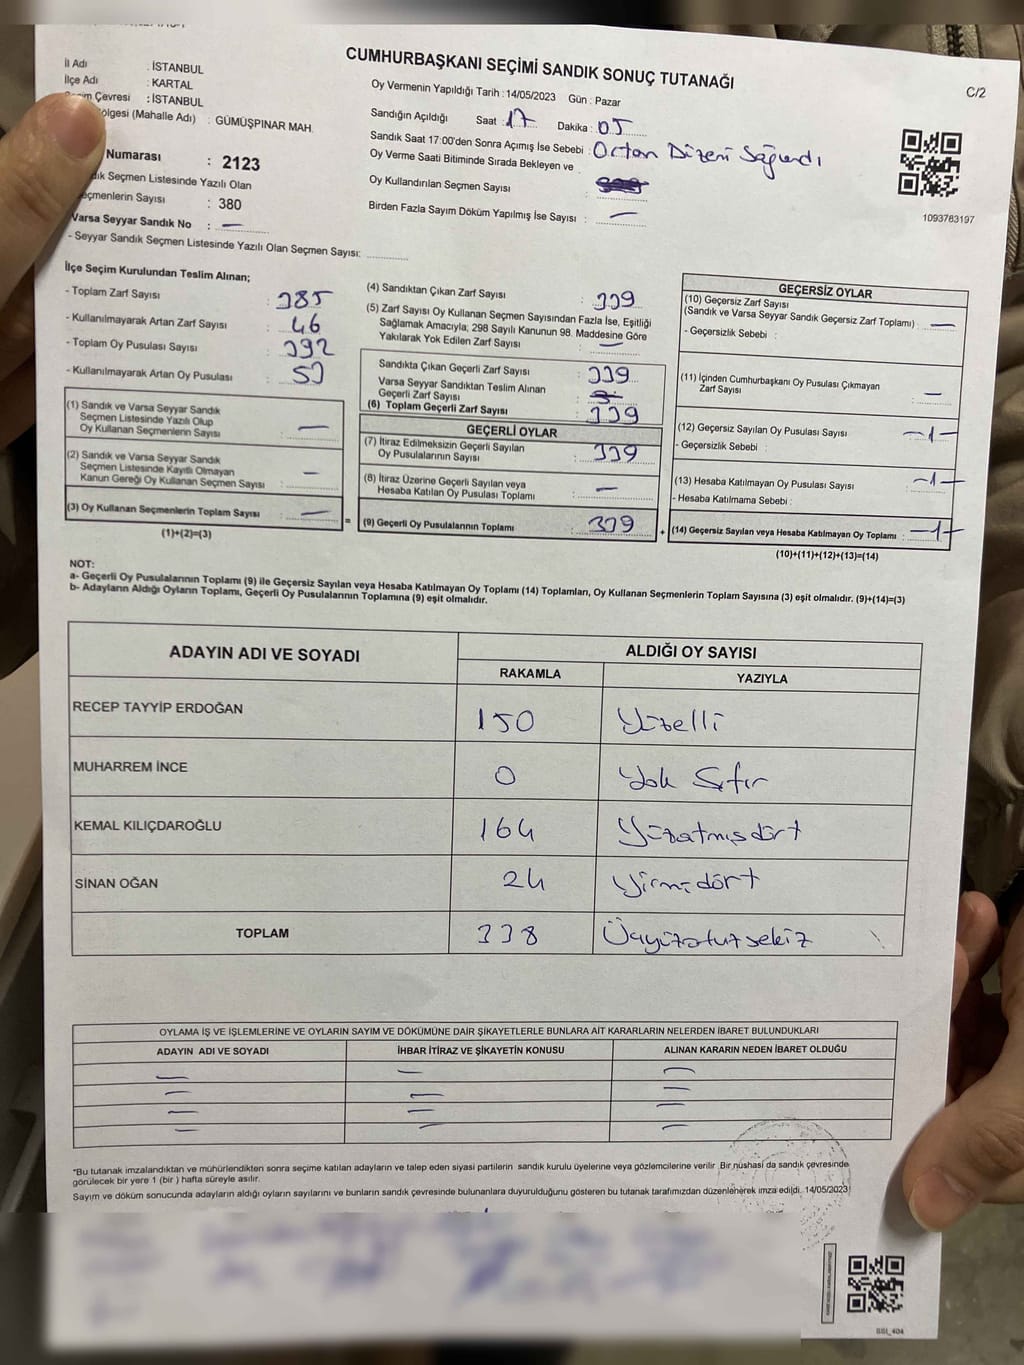 CUMHURBAŞKANI SEÇİMİ SANDIK SONUÇ TUTANAĞI
C/2
İl Adı : İSTANBUL
İlçe Adı : KARTAL
Çevresi : İSTANBUL
(Mahalle Adı) : GÜMÜŞPINAR MAH.
Numarası : 2123
Seçmen Listesinde Yazılı Olan
Sayısı : 380
Varsa Seyyar Sandık No : —
- Seyyar Sandık Seçmen Listesinde Yazılı Olan Seçmen Sayısı:
Oy Vermenin Yapıldığı Tarih : 14/05/2023 Gün : Pazar
Sandığın Açıldığı Saat : 17 Dakika : 05
Sandık Saat 17:00'den Sonra Açımış İse Sebebi : Ortan Düzeni Sağlandı
Oy Verme Saati Bitiminde Sırada Bekleyen ve
Oy Kullandırılan Seçmen Sayısı :
Birden Fazla Sayım Döküm Yapılmış İse Sayısı : —
1093763197
İlçe Seçim Kurulundan Teslim Alınan;
- Toplam Zarf Sayısı : 385
- Kullanılmayarak Artan Zarf Sayısı : 46
- Toplam Oy Pusulası Sayısı : 392
- Kullanılmayarak Artan Oy Pusulası : 53
(1) Sandık ve Varsa Seyyar Sandık
Seçmen Listesinde Yazılı Olup
Oy Kullanan Seçmenlerin Sayısı : —
(2) Sandık ve Varsa Seyyar Sandık
Seçmen Listesinde Kayıtlı Olmayan
Kanun Gereği Oy Kullanan Seçmen Sayısı : —
(3) Oy Kullanan Seçmenlerin Toplam Sayısı : —
(1)+(2)=(3)
=
(4) Sandıktan Çıkan Zarf Sayısı : 339
(5) Zarf Sayısı Oy Kullanan Seçmen Sayısından Fazla İse, Eşitliği
Sağlamak Amacıyla; 298 Sayılı Kanunun 98. Maddesine Göre
Yakılarak Yok Edilen Zarf Sayısı : —
Sandıkta Çıkan Geçerli Zarf Sayısı : 339
Varsa Seyyar Sandıktan Teslim Alınan
Geçerli Zarf Sayısı :
(6) Toplam Geçerli Zarf Sayısı : 339
GEÇERLİ OYLAR
(7) İtiraz Edilmeksizin Geçerli Sayılan
Oy Pusulalarının Sayısı : 339
(8) İtiraz Üzerine Geçerli Sayılan veya
Hesaba Katılan Oy Pusulası Toplamı : —
(9) Geçerli Oy Pusulalarının Toplamı : 339
+
GEÇERSİZ OYLAR
(10) Geçersiz Zarf Sayısı
(Sandık ve Varsa Seyyar Sandık Geçersiz Zarf Toplamı) : —
- Geçersizlik Sebebi :
(11) İçinden Cumhurbaşkanı Oy Pusulası Çıkmayan
Zarf Sayısı : —
(12) Geçersiz Sayılan Oy Pusulası Sayısı : —1—
- Geçersizlik Sebebi :
(13) Hesaba Katılmayan Oy Pusulası Sayısı : —1—
- Hesaba Katılmama Sebebi :
(14) Geçersiz Sayılan veya Hesaba Katılmayan Oy Toplamı : —1—
(10)+(11)+(12)+(13)=(14)
NOT:
a- Geçerli Oy Pusulalarının Toplamı (9) ile Geçersiz Sayılan veya Hesaba Katılmayan Oy Toplamı (14) Toplamları, Oy Kullanan Seçmenlerin Toplam Sayısına (3) eşit olmalıdır. (9)+(14)=(3)
b- Adayların Aldığı Oyların Toplamı, Geçerli Oy Pusulalarının Toplamına (9) eşit olmalıdır.
ADAYIN ADI VE SOYADI ALDIĞI OY SAYISI
RAKAMLA YAZIYLA
RECEP TAYYİP ERDOĞAN 150 Yüzelli
MUHARREM İNCE 0 Yok Sıfır
KEMAL KILIÇDAROĞLU 164 Yüzatmışdört
SİNAN OĞAN 24 Yirmidört
TOPLAM 338 Üçyüzotuzsekiz
OYLAMA İŞ VE İŞLEMLERİNE VE OYLARIN SAYIM VE DÖKÜMÜNE DAİR ŞİKAYETLERLE BUNLARA AİT KARARLARIN NELERDEN İBARET BULUNDUKLARI
ADAYIN ADI VE SOYADI İHBAR İTİRAZ VE ŞİKAYETİN KONUSU ALINAN KARARIN NEDEN İBARET OLDUĞU
— — —
— — —
— — —
— — —
*Bu tutanak imzalandıktan ve mühürlendikten sonra seçime katılan adayların ve talep eden siyasi partilerin sandık kurulu üyelerine veya gözlemcilerine verilir. Bir nüshası da sandık çevresinde
görülecek bir yere 1 (bir ) hafta süreyle asılır.
Sayım ve döküm sonucunda adayların aldığı oyların sayılarını ve bunların sandık çevresinde bulunanlara duyurulduğunu gösteren bu tutanak tarafımızdan düzenlenerek imza edildi. 14/05/2023
SSI_404